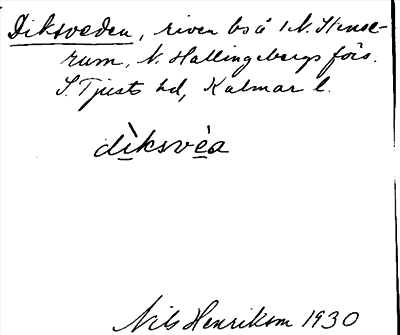 Diksveden, river bs å 1 N. Stense-
rum, N. Hallingebergs förs.
S. Tjusts hd, Kalmar l.
dìksvèa
Nils Henrikson 1930